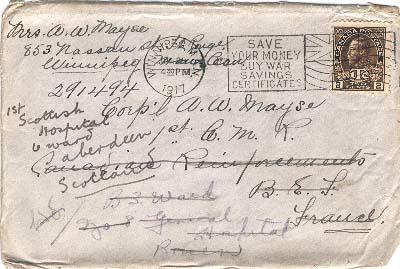 Mrs. A. W. Mayse
853 Nassau St
Winnipeg Man Can
WINNIPEG
4 30 PM
1917
SAVE
YOUR MONEY
BUY WAR
SAVINGS
CERTIFICATES
291494
Corp'l A. W. Mayse
1st C. M. R.
Canadian Reinforcements
B. E. F.
France
1st
Scottish
Hospital
ward
Aberdeen
Scotland
B3 Ward
No 8 General
Hospital
Rouen